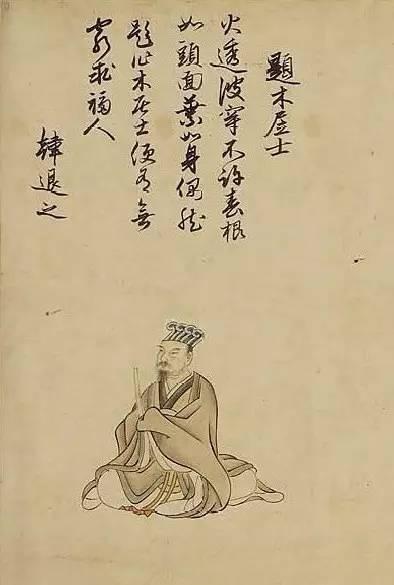 題木居士
火透波穿不計春根
如頭面葉如身偶然
題作木居士便有無
窮求福人
韓退之